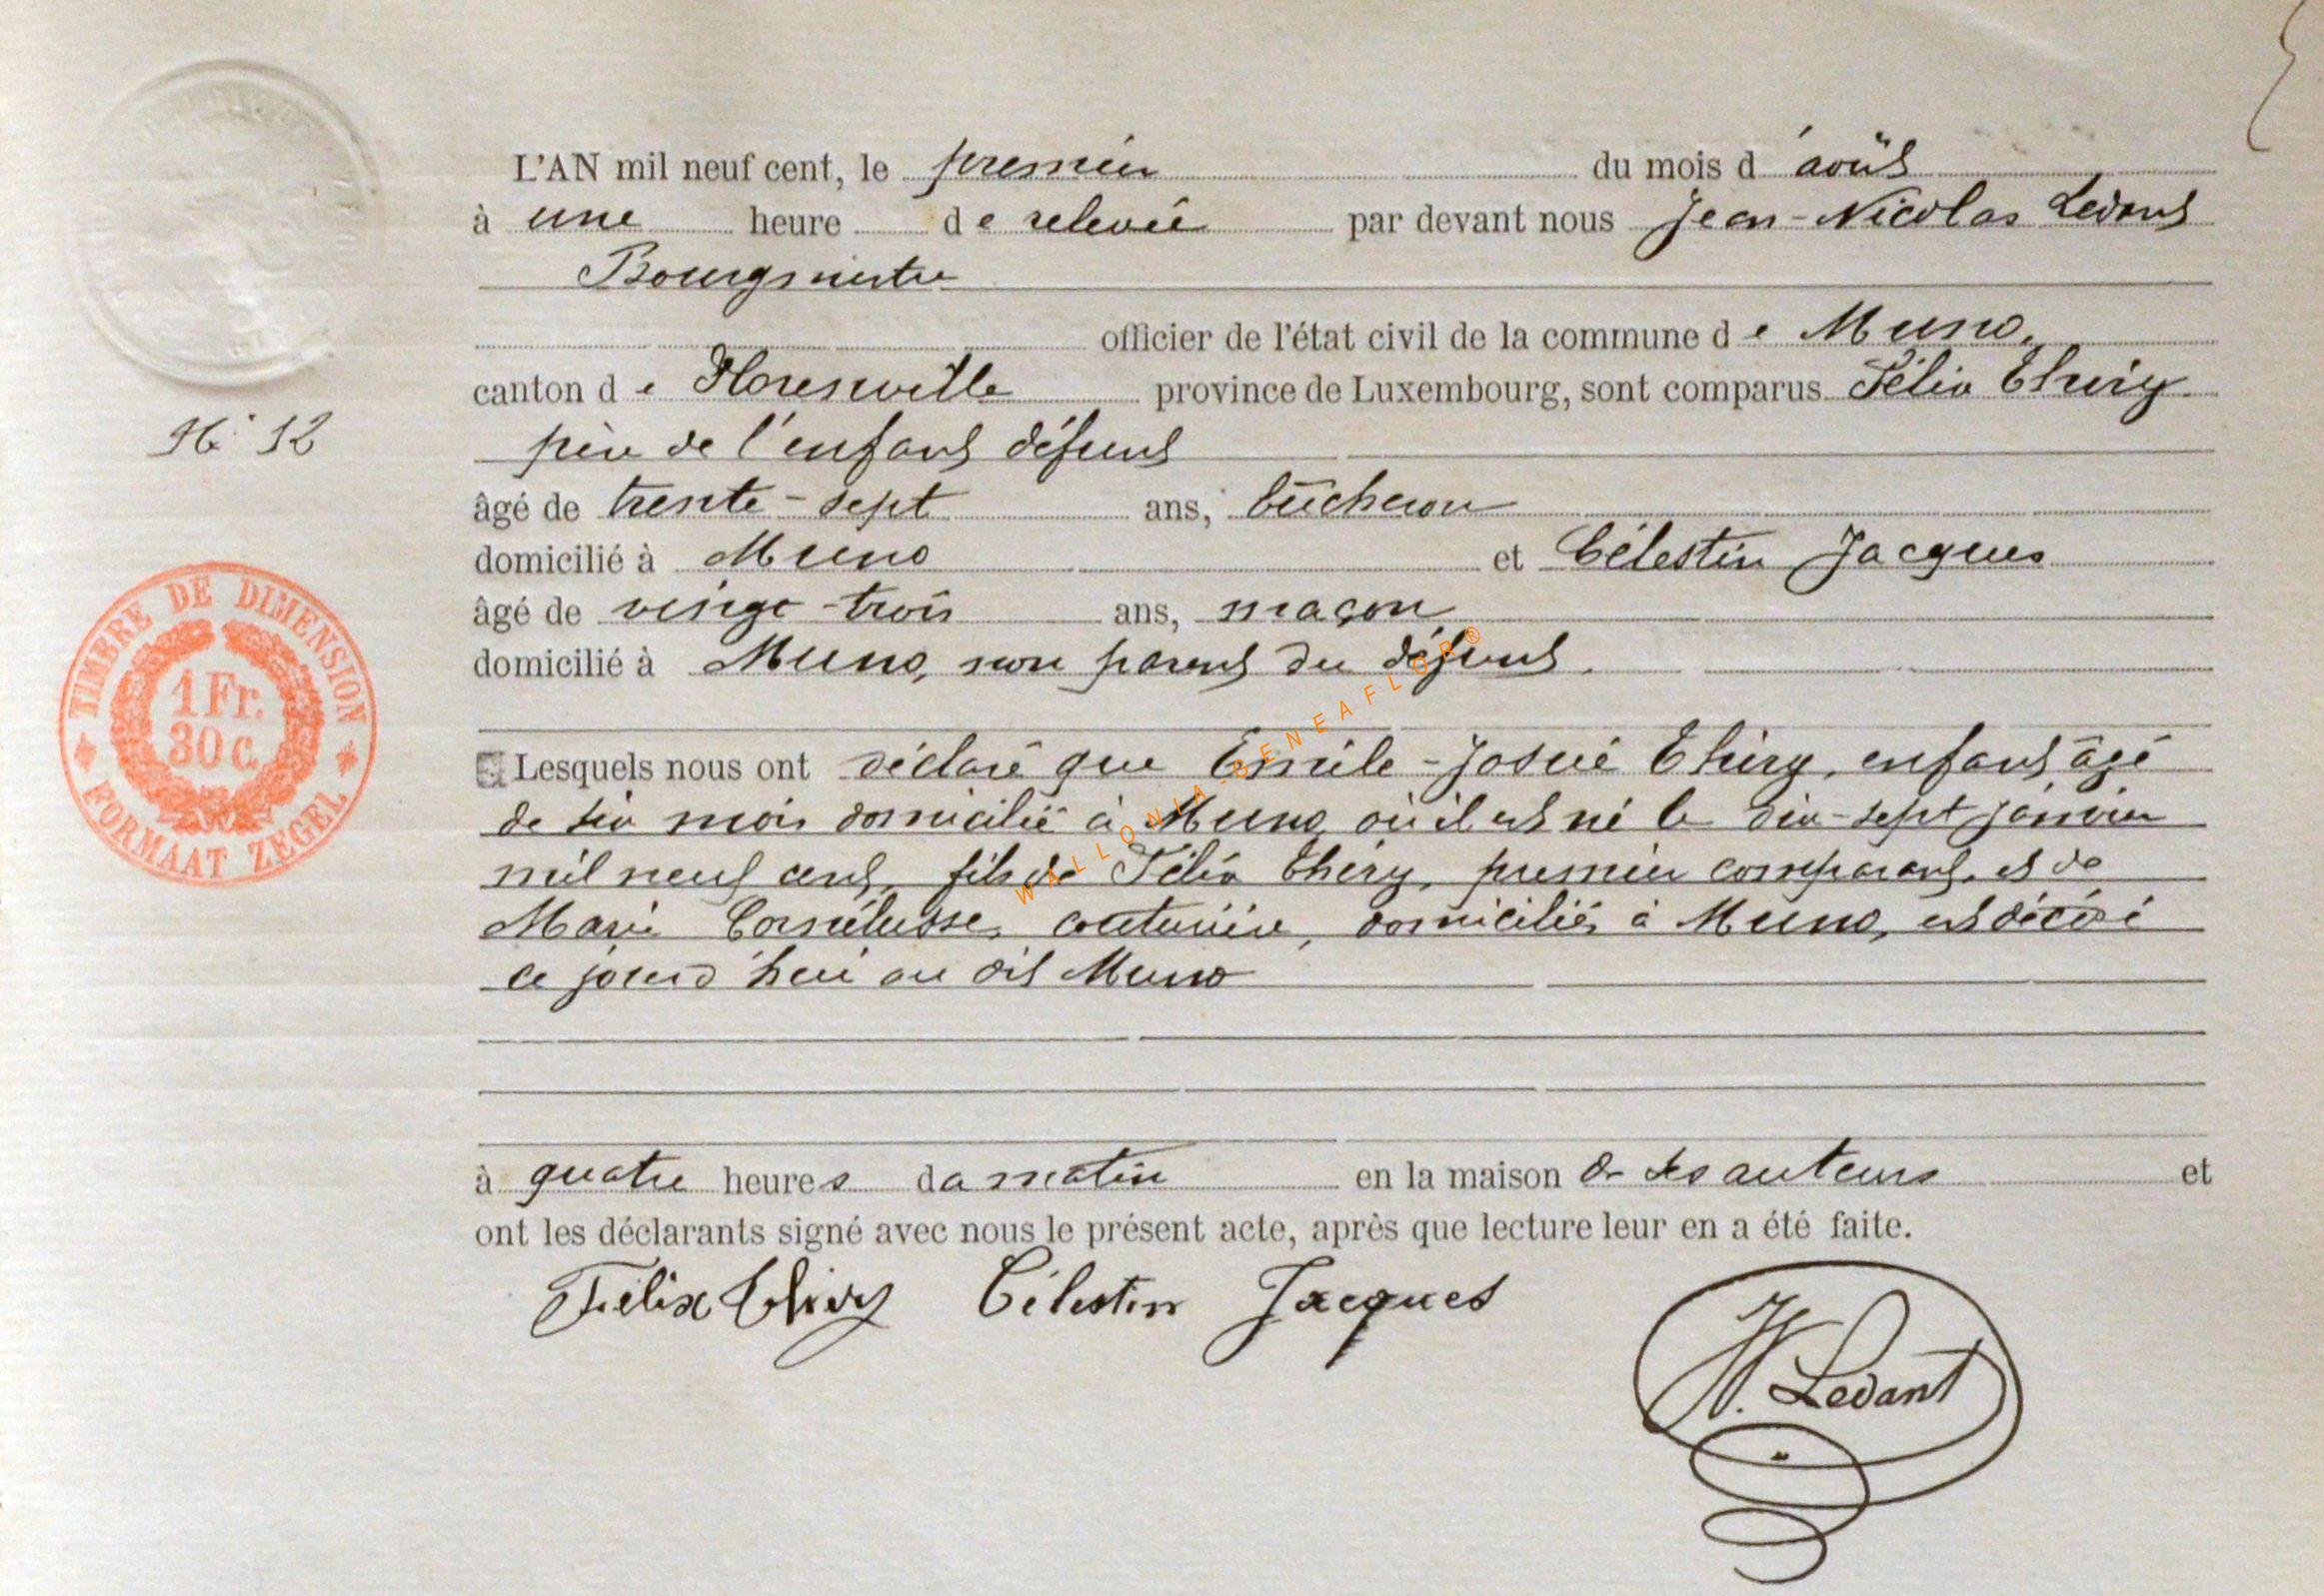 L'AN mil neuf cent, le premier du mois d'août
à une heure de relevée par devant nous Jean-Nicolas Ledant
Bourgmestre
officier de l'état civil de la commune de Muno,
canton de Florenville province de Luxembourg, sont comparus Félix Thiry
N° 12
père de l'enfant défunt
âgé de trente-sept ans, bûcheron
domicilié à Muno et Célestin Jacques
âgé de vingt-trois ans, maçon
domicilié à Muno, non parent du défunt.
TIMBRE DE DIMENSION
1 Fr.
30 c.
FORMAAT ZEGEL
Lesquels nous ont déclaré que Emile-Josué Thiry, enfant âgé
de six mois domicilié à Muno où il est né le dix-sept janvier
mil neuf cent, fils de Félix Thiry, premier comparant, et de
Marie Cornélusse, couturière, domiciliés à Muno, est décédé
ce jourd'hui au dit Muno
WALLONIA-GENEAFLOR®
à quatre heures du matin en la maison de ses auteurs et
ont les déclarants signé avec nous le présent acte, après que lecture leur en a été faite.
Félix Thiry Célestin Jacques
N. Ledant